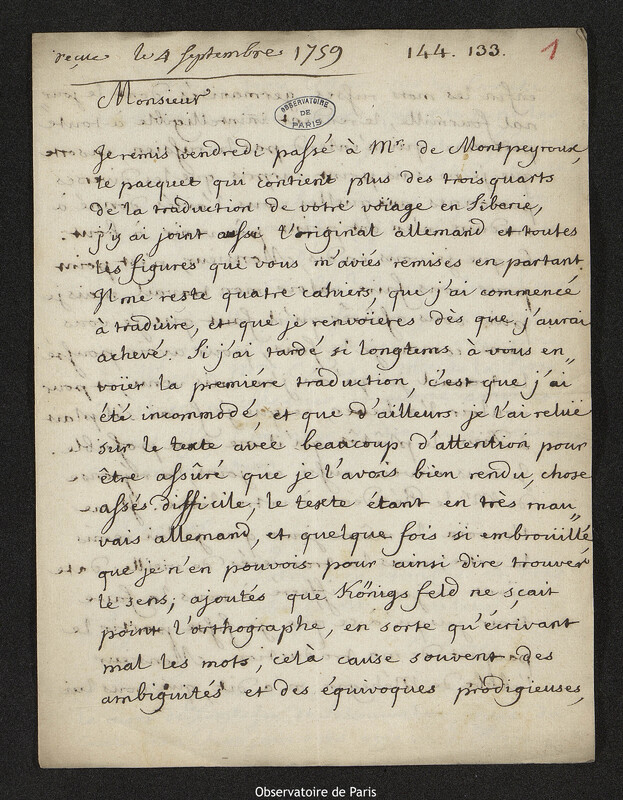 reçue le 4 Septembre 1759 144. 133. 1
Monsieur
OBSERVATOIRE DE PARIS
Je remis vendredi passé à Mr. de Montpeyroux,
le pacquet qui contient plus des trois quarts
de la traduction de vôtre voiage en Siberie,
j'y ai joint aussi l'original allemand et toutes
les figures que vous m'aviés remises en partant.
Il me reste quatre cahiers, que j'ai commencé
à traduire, et que je renvoieres dès que j'aurai
achevé. Si j'ai tardé si longtems à vous en„
voiër la premiére traduction, c'est que j'ai
été incommodé, et que d'ailleurs je l'ai reluë
sur le texte avec beaucoup d'attention pour
être assûré que je l'avois bien rendu, chose
assés difficile, le texte étant en très mau„
vais allemand, et quelque fois si embrouillé
que je n'en pouvois pour ainsi dire trouver
le sens; ajoutés que Königsfeld ne sçait
point l'orthographe, en sorte qu'écrivant
mal les mots, celà cause souvent des
ambiguités et des équivoques prodigieuses,
Observatoire de Paris